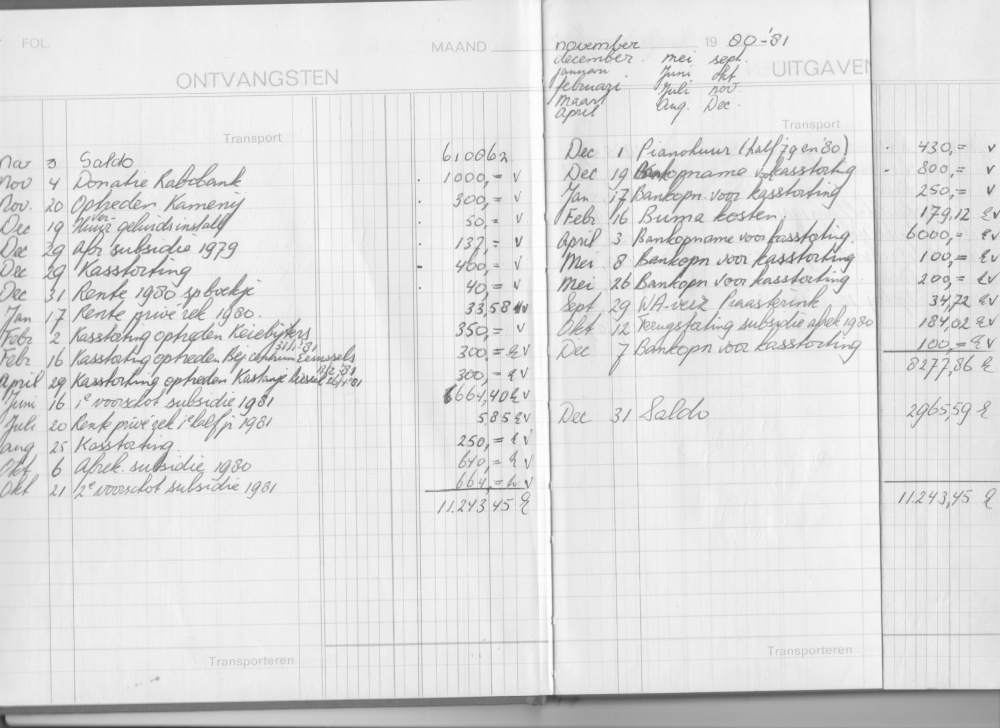 FOL.
MAAND
ONTVANGSTEN
Transport
Nov 3 Saldo 6100 62
Nov 4 Donatie Rabobank 1000,= v
Nov. 20 Optreden Kamerij 300,= v
Dec 19 Verhuur geluidsinstall 50,= v
Dec 29 Afr subsidie 1979 137,= v
Dec 29 Kasstorting 400,= v
Dec 31 Rente 1980 spboekje 40,= v
Jan 17 Rente privérek 1980. 33,58 v
Febr 2 Kasstorting optreden Keiebijters 350,= v
31/1 '81
Febr 16 Kasstorting optreden Bej 300,= v
April 29 Kasstorting optreden 300,= v
Juni 16 1e voorschot subsidie 1981 1664,40 v
Juli 20 Rente privé rek 1e half j 1981 5,85 v
Aug 25 Kasstorting 250,= v
Okt 6 Afrek. subsidie 1980 640,= v
Okt 21 2e voorschot subsidie 1981 664,= v
11.243,45
Transporteren
november 19 80-'81
december mei sept.
januari juni okt
februari juli nov
maart aug. Dec.
april
UITGAVEN
Transport
Dec 1 Pianohuur (half '79 en '80) 430,= v
Dec 19 Bankopname voor kasstorting 800,= v
Jan 17 Bankopn. voor kasstorting 250,= v
Febr 16 Buma kosten 179,12 v
April 3 Bankopname voor kasstorting. 6000,= v
Mei 8 Bankopn voor kasstorting 100,= v
Mei 26 Bankopn voor kasstorting 200,= v
Sept 29 WA-verz 34,72 v
Okt 12 Terugstorting subsidie afrek 1980 184,02 v
Dec 7 Bankopn voor kasstorting 100,= v
8277,86
Dec 31 Saldo 2965,59
11.243,45
Transporteren